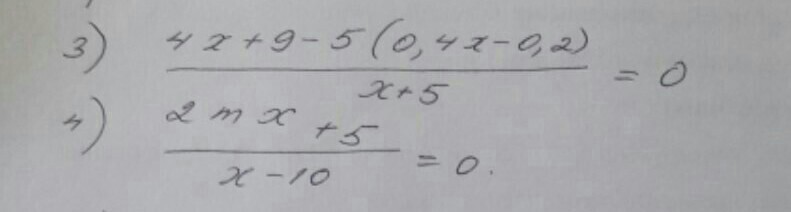 3) \frac{4x+9-5(0,4x-0,2)}{x+5} = 0
4) \frac{2mx+5}{x-10} = 0.